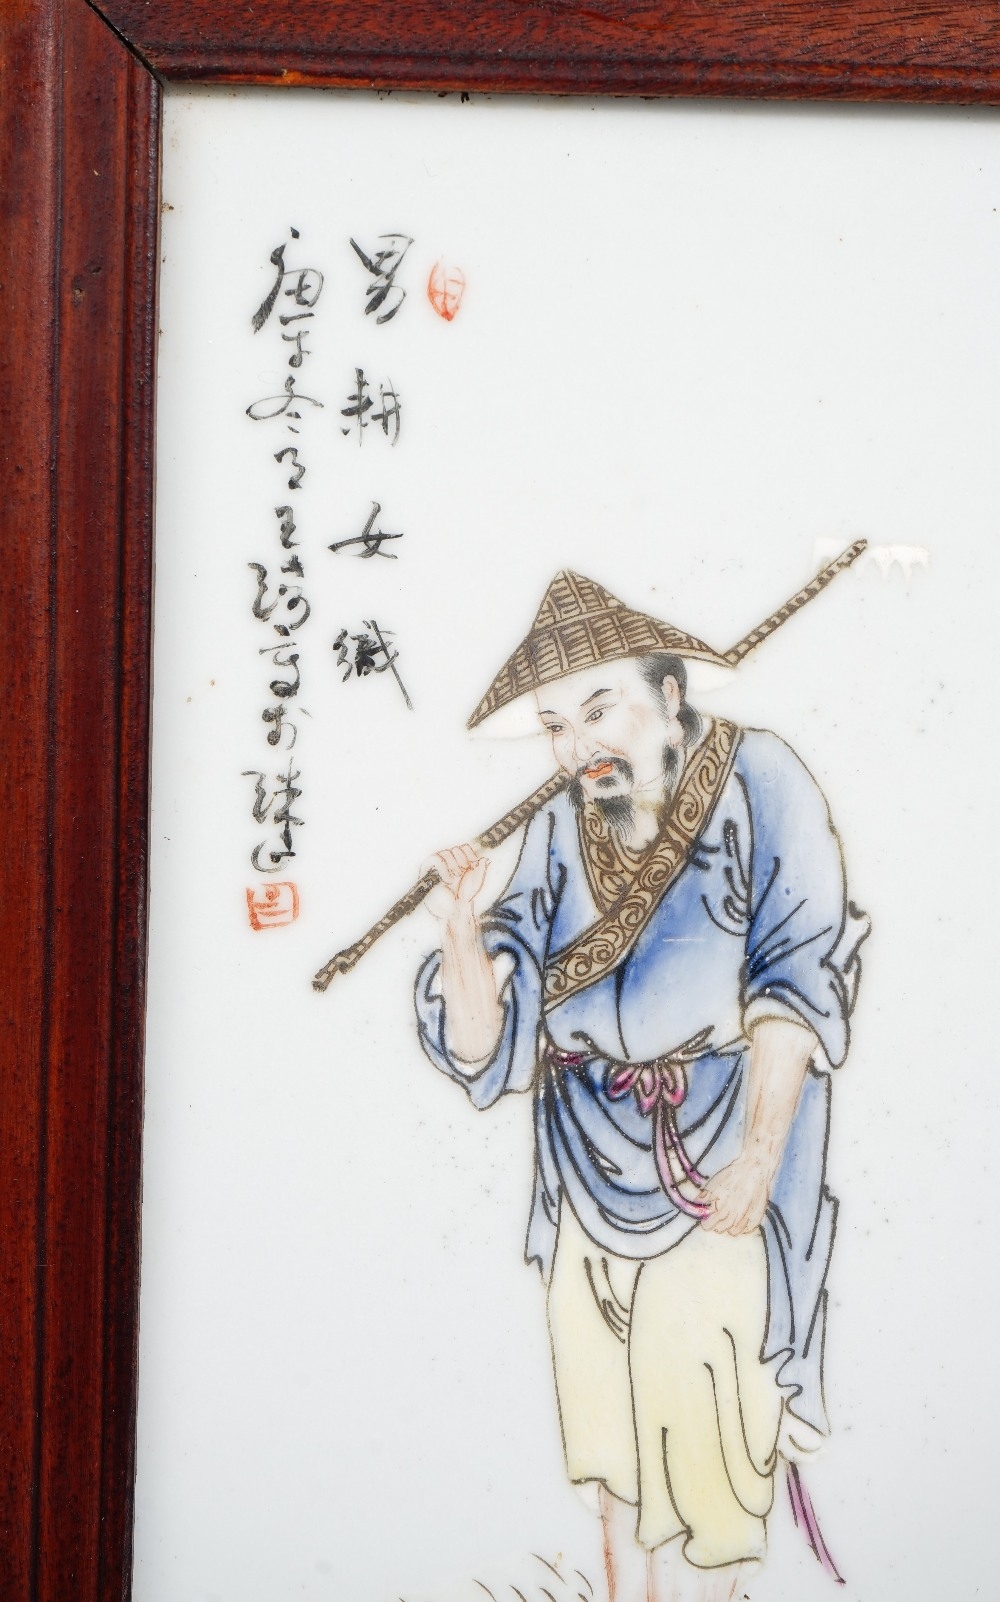 男耕女織
庚午冬月王琦寫於珠山